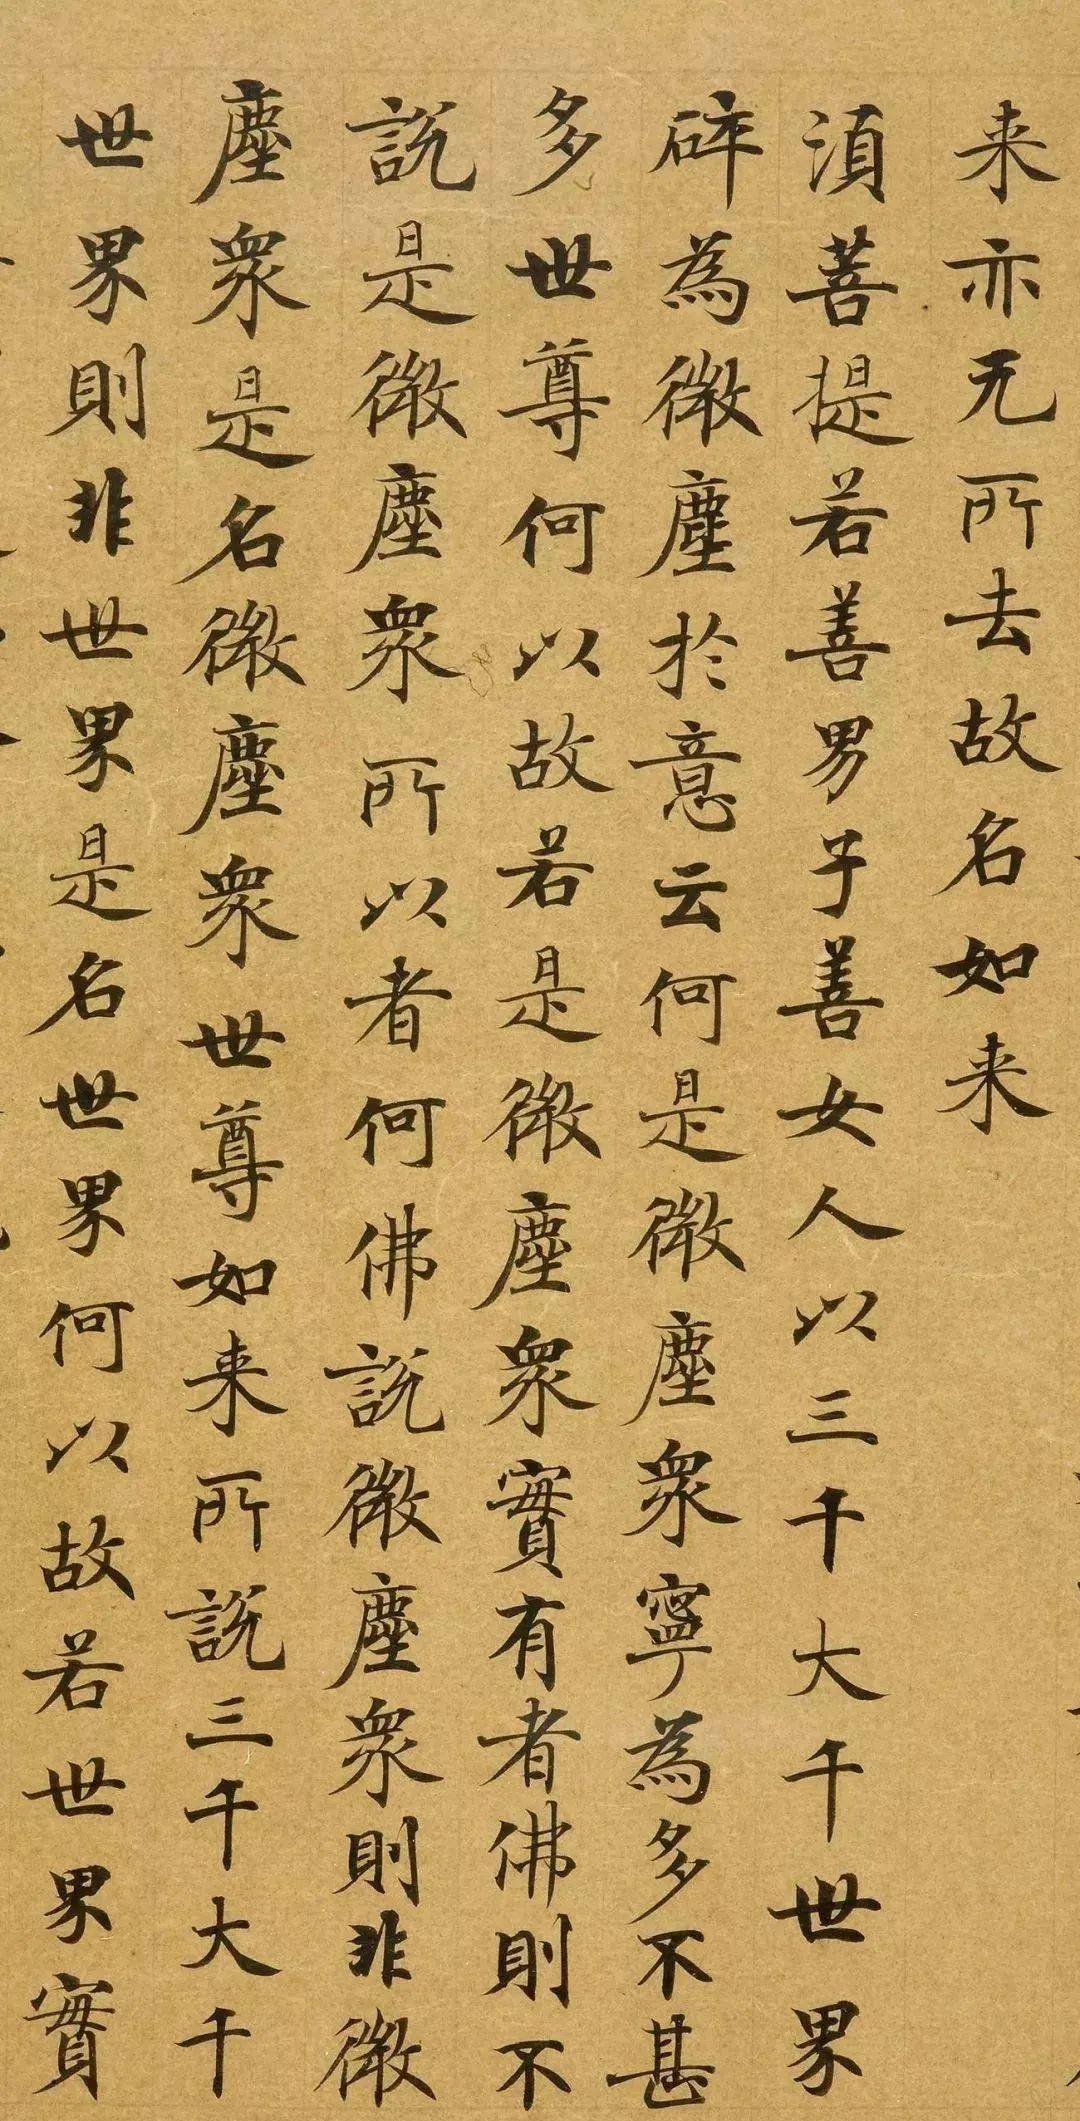 来亦无所去故名如来
須菩提若善男子善女人以三千大千世界
碎為微塵於意云何是微塵衆寧為多不甚
多世尊何以故若是微塵衆實有者佛則不
說是微塵衆所以者何佛說微塵衆則非微
塵衆是名微塵衆世尊如来所說三千大千
世界則非世界是名世界何以故若世界實